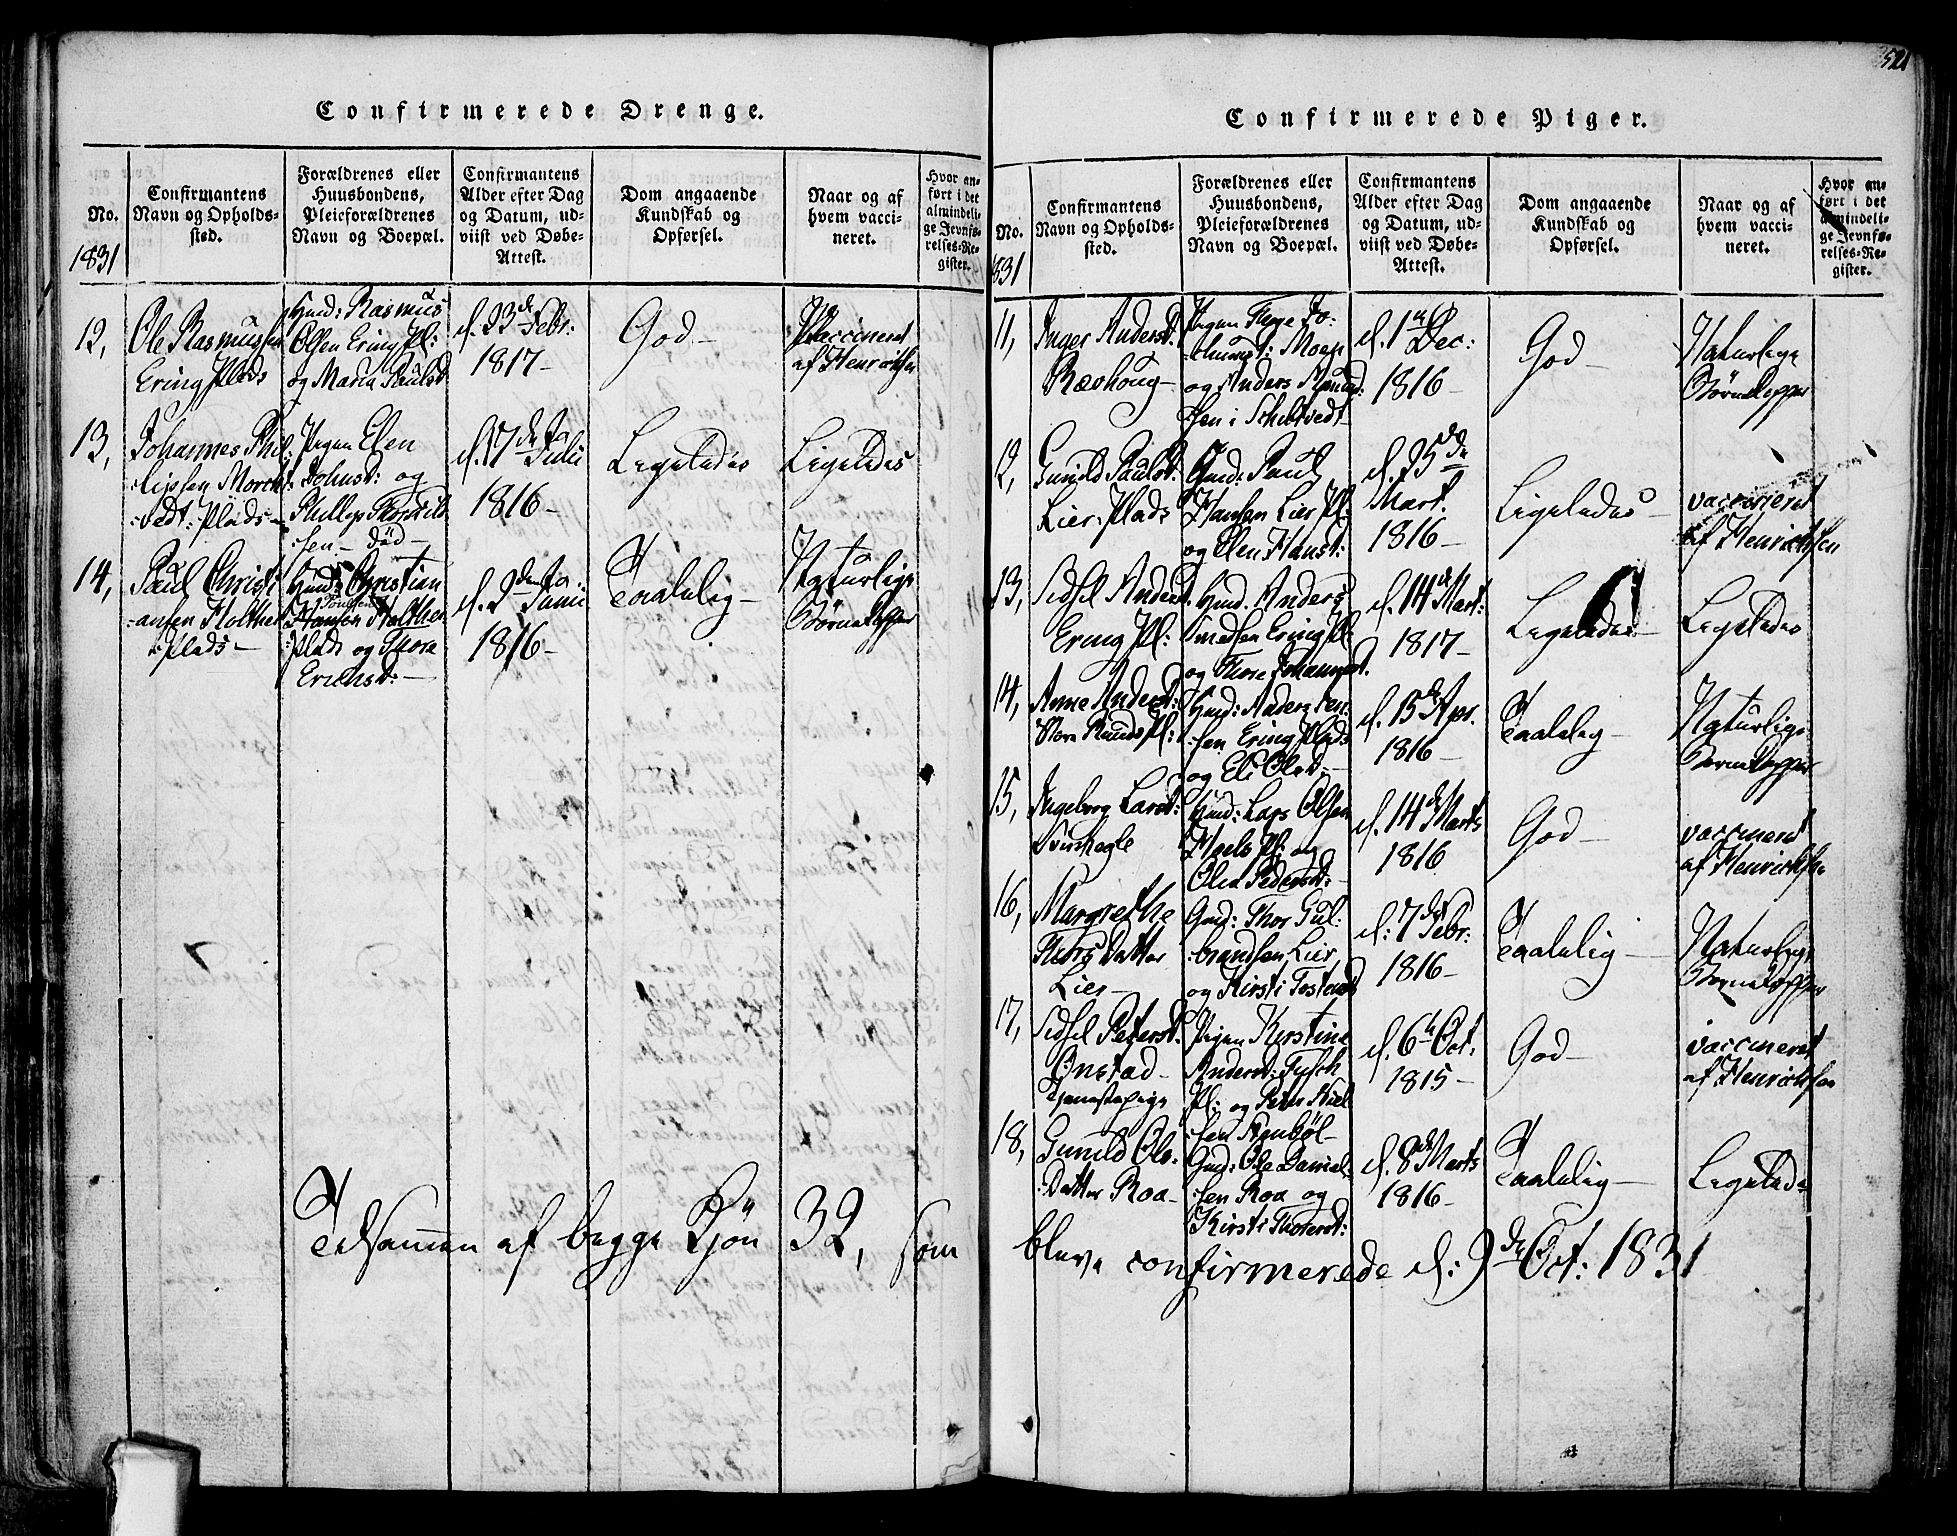 521
Confirmerede Drenge.
No.
1831
Confirmantens
Navn og Opholds-
sted.
Forældrenes eller
Huusbondens,
Pleieforældrenes
Navn og Boepæl.
Confirmantens
Alder efter Dag
og Datum, ud-
viist ved Døbe-
Attest.
Dom angaaende
Kundskab og
Opførsel.
Naar og af
hvem vacci-
neret.
Hvor an-
ført i det
almindeli-
ge Jevnfø-
relses-Re-
gister.
12,
Ole Rasmussen
Ering Plads
Huusd: Rasmus
Olsen Ering Pl:
og Maria Paulsd
d. 23de Febr:
1817-
God-
Vaccineret
af Henrichsen
13,
Johannes Phil:
:lipsen Morch:
:vedt: Plads-
Pigen Elen
Johnsd: og
Phillip
:sen- død-
d. 17de Julii
1816-
Ligeledes
Ligeledes
14,
Paul Christi
:ansen Holther
:Plads-
Huusd: Christian
Hansen Holther
:Plads og Thore
Erichsd:-
d. 2den Junii
1816-
Taalelig-
Naturlige
Børnekopper
Tilsammen af begge Kjön 32, som
Confirmerede Piger.
No.
831
Confirmantens
Navn og Opholds-
sted.
Forældrenes eller
Huusbondens,
Pleieforældrenes
Navn og Boepæl.
Confirmantens
Alder efter Dag
og Datum, ud-
viist ved Døbe-
Attest.
Dom angaaende
Kundskab og
Opførsel.
Naar og af
hvem vacci-
neret.
Hvor an-
ført i det
almindeli-
ge Jevnfø-
relses-Re-
gister.
11,
Inger Andersd:
Revhoug-
Pigen
og Anders
:sen i
d. 1ste Dec:
1816-
God
Naturlige
Børnekopper
12,
Gunild Paulsd:
Lier: Plads
Gmd: Paul
Hansen Lier Pl:
og Elen Hansd:
d. 25de
Mart.
1816-
Ligeledes-
vaccineret
af Henrichsen
13,
Sidsel Andersd.
Ering Pl:
Huusd. Anders
Ering Pl:
og Thore Johannesd.
d. 14de Mart:
1817-
Ligeledes-
Ligeledes
14,
Anne Andersd:
Store Runds Pl:
Huusd: Anders
:sen Ering Plads
og Eli Olsd:-
d. 15de Apr.
1816-
Taalelig-
Naturlige
Børnekopper
15,
Ingeborg Larsd:
Huusd: Lars Olsen
Pl: og
Olea Pedersd:
d. 14de Marts
1816
God-
vaccineret
af Henrichsen
16,
Margrethe
Thors Datter
Lier-
Gmd: Thor Gul:
:brandsen Lier,
og Kirsti Tostensd
d: 7de Febr:
1816-
Taalelig-
Naturlige
Børnekopper
17,
Sidsel Petersd:
Onstad-
Tjenestepige
Pigen Kirstine
Andersd:
Pl: og Peter Niel
:sen
d. 6te Oct.
1815-
God-
vaccineret
af Henrichsen
18,
Gunild Ols:
:Datter Roa-
Gmd: Ole Daniel:
:sen Roa og
Kirsti Thoresd:
d. 8de Marts
1816-
Taalelig-
Ligeledes
bleve confirmerede d: 9de Oct: 1831